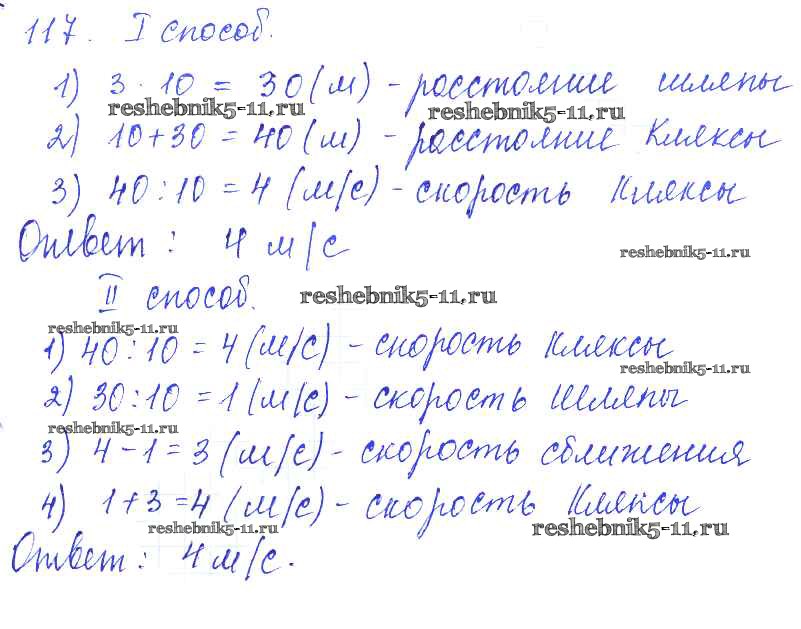 117. I способ.
1) 3 · 10 = 30 (м) - расстояние шляпы
reshebnik5-11.ru reshebnik5-11.ru
2) 10+30 = 40 (м) - расстояние Кляксы
3) 40:10 = 4 (м/с) - скорость Кляксы
Ответ: 4 м/с
reshebnik5-11.ru
II способ.
reshebnik5-11.ru
reshebnik5-11.ru
1) 40:10 = 4 (м/с) - скорость Кляксы
reshebnik5-11.ru
2) 30:10 = 1 (м/с) - скорость Шляпы
reshebnik5-11.ru
3) 4-1 = 3 (м/с) - скорость сближения
4) 1+3 = 4 (м/с) - скорость Кляксы
reshebnik5-11.ru reshebnik5-11.ru
Ответ: 4 м/с.